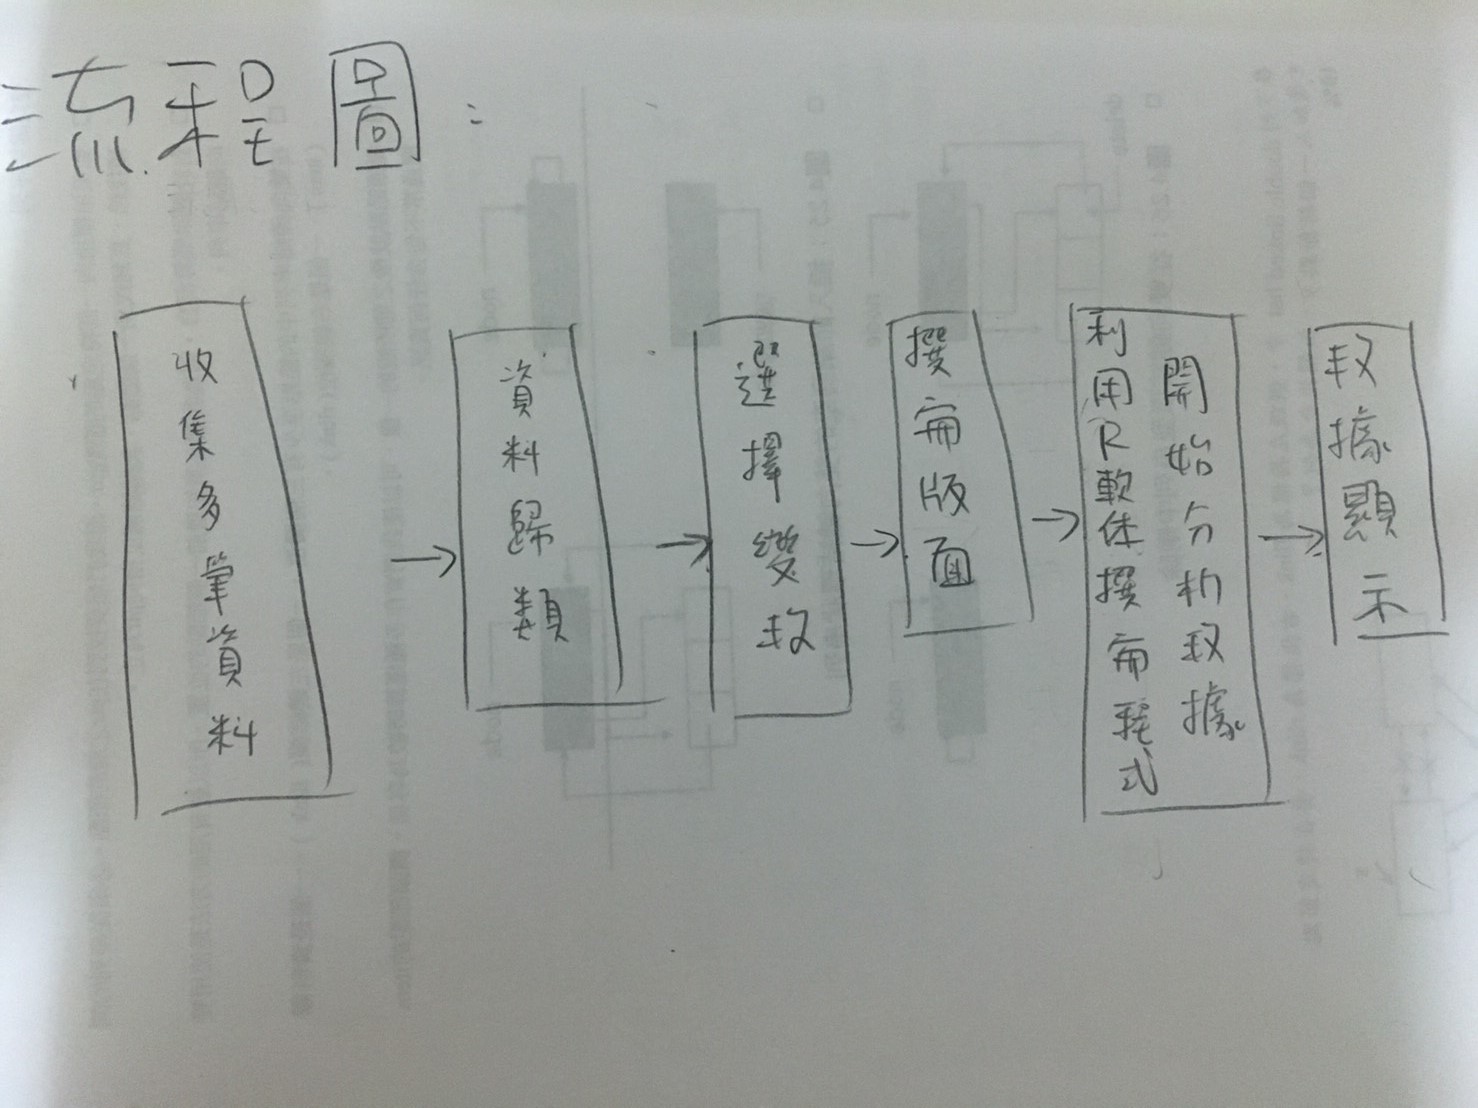 流程圖:
收集多筆資料
資料歸類
選擇變数
撰寫版面
利用R軟体撰寫程式
開始分析数據
数據顯示